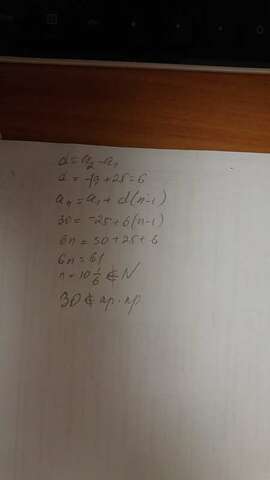 d = a₂ - a₁
d = -19 + 25 = 6
aₙ = a₁ + d(n-1)
30 = -25 + 6(n-1)
6n = 30 + 25 + 6
6n = 61
n = 10 1/6 ∉ N
30 ∉ ар. пр